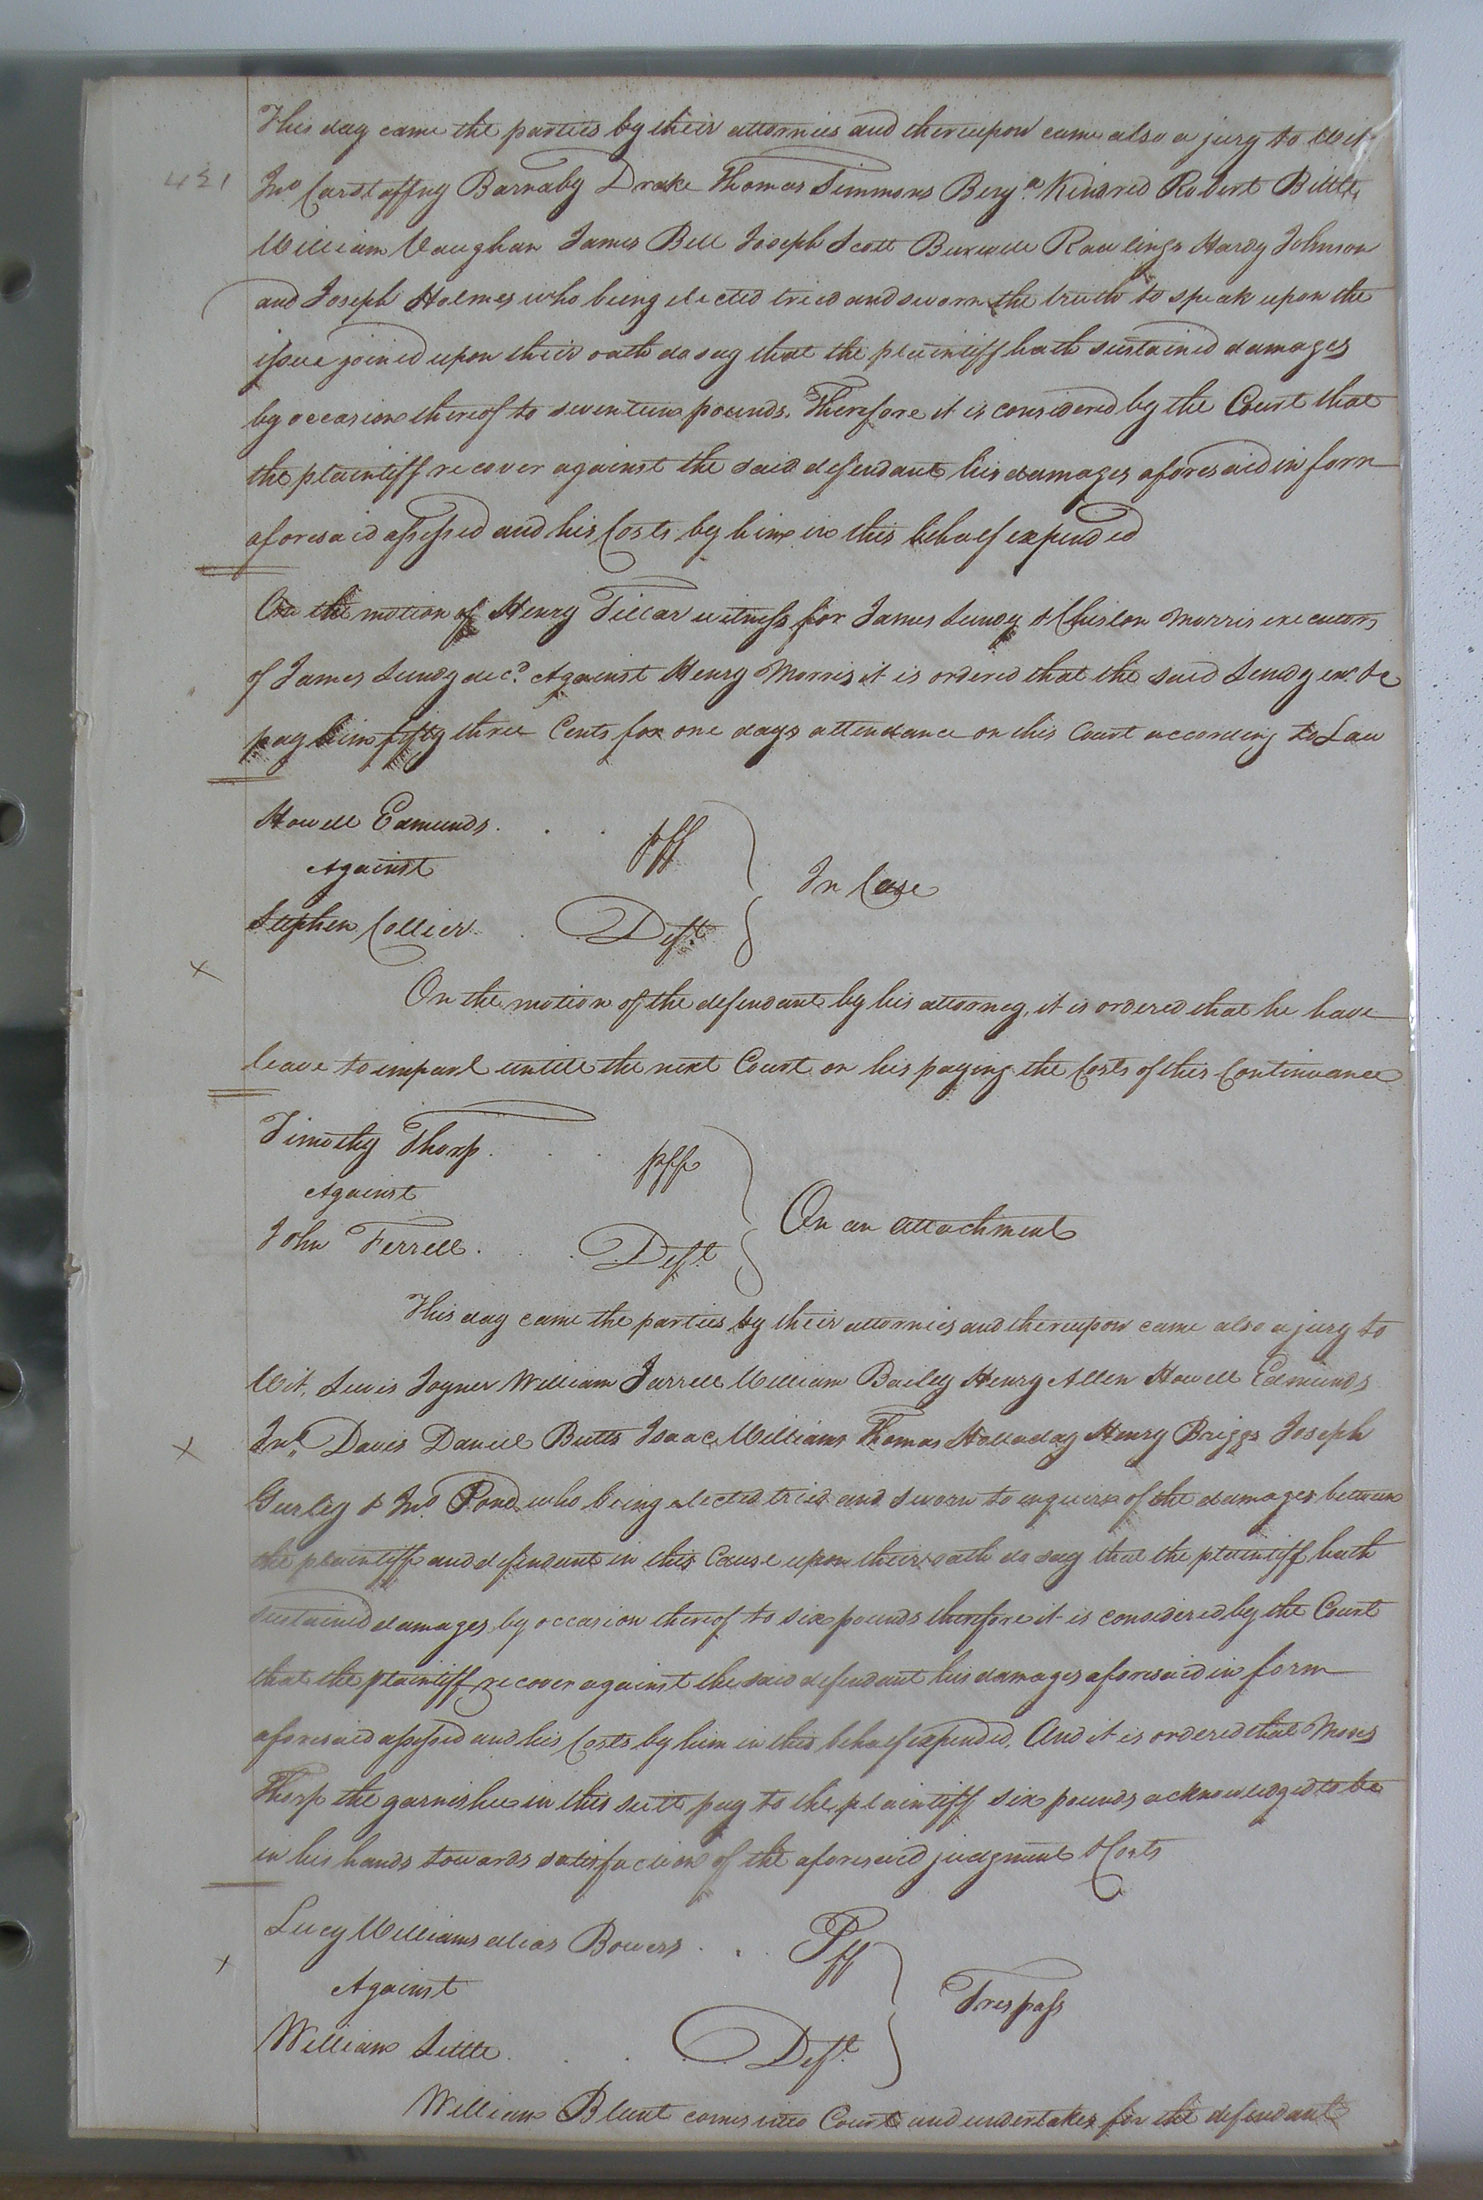 This day came the parties by their attornies and thereupon came also a jury to Wit
421
Jno. Carstaffny Barnaby Drake Thomas Simmons Benja. Kindred Robert Bittle
William Vaughan James Bell Joseph Scott Burwell Rawlings Hardy Johnson
and Joseph Holmes who being elected tried and sworn the truth to speak upon the
issue joined upon their oath do say that the plaintiff hath sustained damages
by occasion thereof to seventeen pounds. Therefore it is considered by the Court that
the plaintiff recover against the said defendant his damages aforesaid in form
aforesaid assessed and his Costs by him in this behalf expended
On the motion of Henry Tillar witness for James Lundy & Chislon Morris executors
of James Lundy decd. Against Henry Morris it is ordered that the said Lundy exr. &c
pay him fifty three Cents for one days attendance on this Court according to Law
Howell Edmunds . . . pff
Against
In Case
Stephen Collier . Deft.
x
On the motion of the defendant by his attorney, it is ordered that he have
leave to imparl untill the next Court on his paying the Costs of this Continuance
Timothy Thorp . . . pff
Against
On an attachment
John Ferrell . . . Deft.
This day came the parties by their attornies and thereupon came also a jury to
Wit, Lewis Joyner William Jarrell William Bailey Henry Allen Howell Edmunds
x
Jno. Davis Daniel Butts Isaac Williams Thomas Holladay Henry Briggs Joseph
Gurley & Jno. Pond who being elected tried and sworn to enquire of the damages between
the plaintiff and defendant in this Cause upon their oath do say that the plaintiff hath
sustained damages by occasion thereof to six pounds therefore it is considered by the Court
that the plaintiff recover against the said defendant his damages aforesaid in form
aforesaid assessed and his Costs by him in this behalf expended. And it is ordered that Moses
Thorp the garnishee in this suit pay to the plaintiff six pounds acknowledged to be
in his hands towards satisfaction of the aforesaid judgment & Costs
Lucy Williams alias Bowers . . . Pff
x
Against
Trespass
William Little . . . Deft.
William Blunt comes into Court and undertakes for the defendant